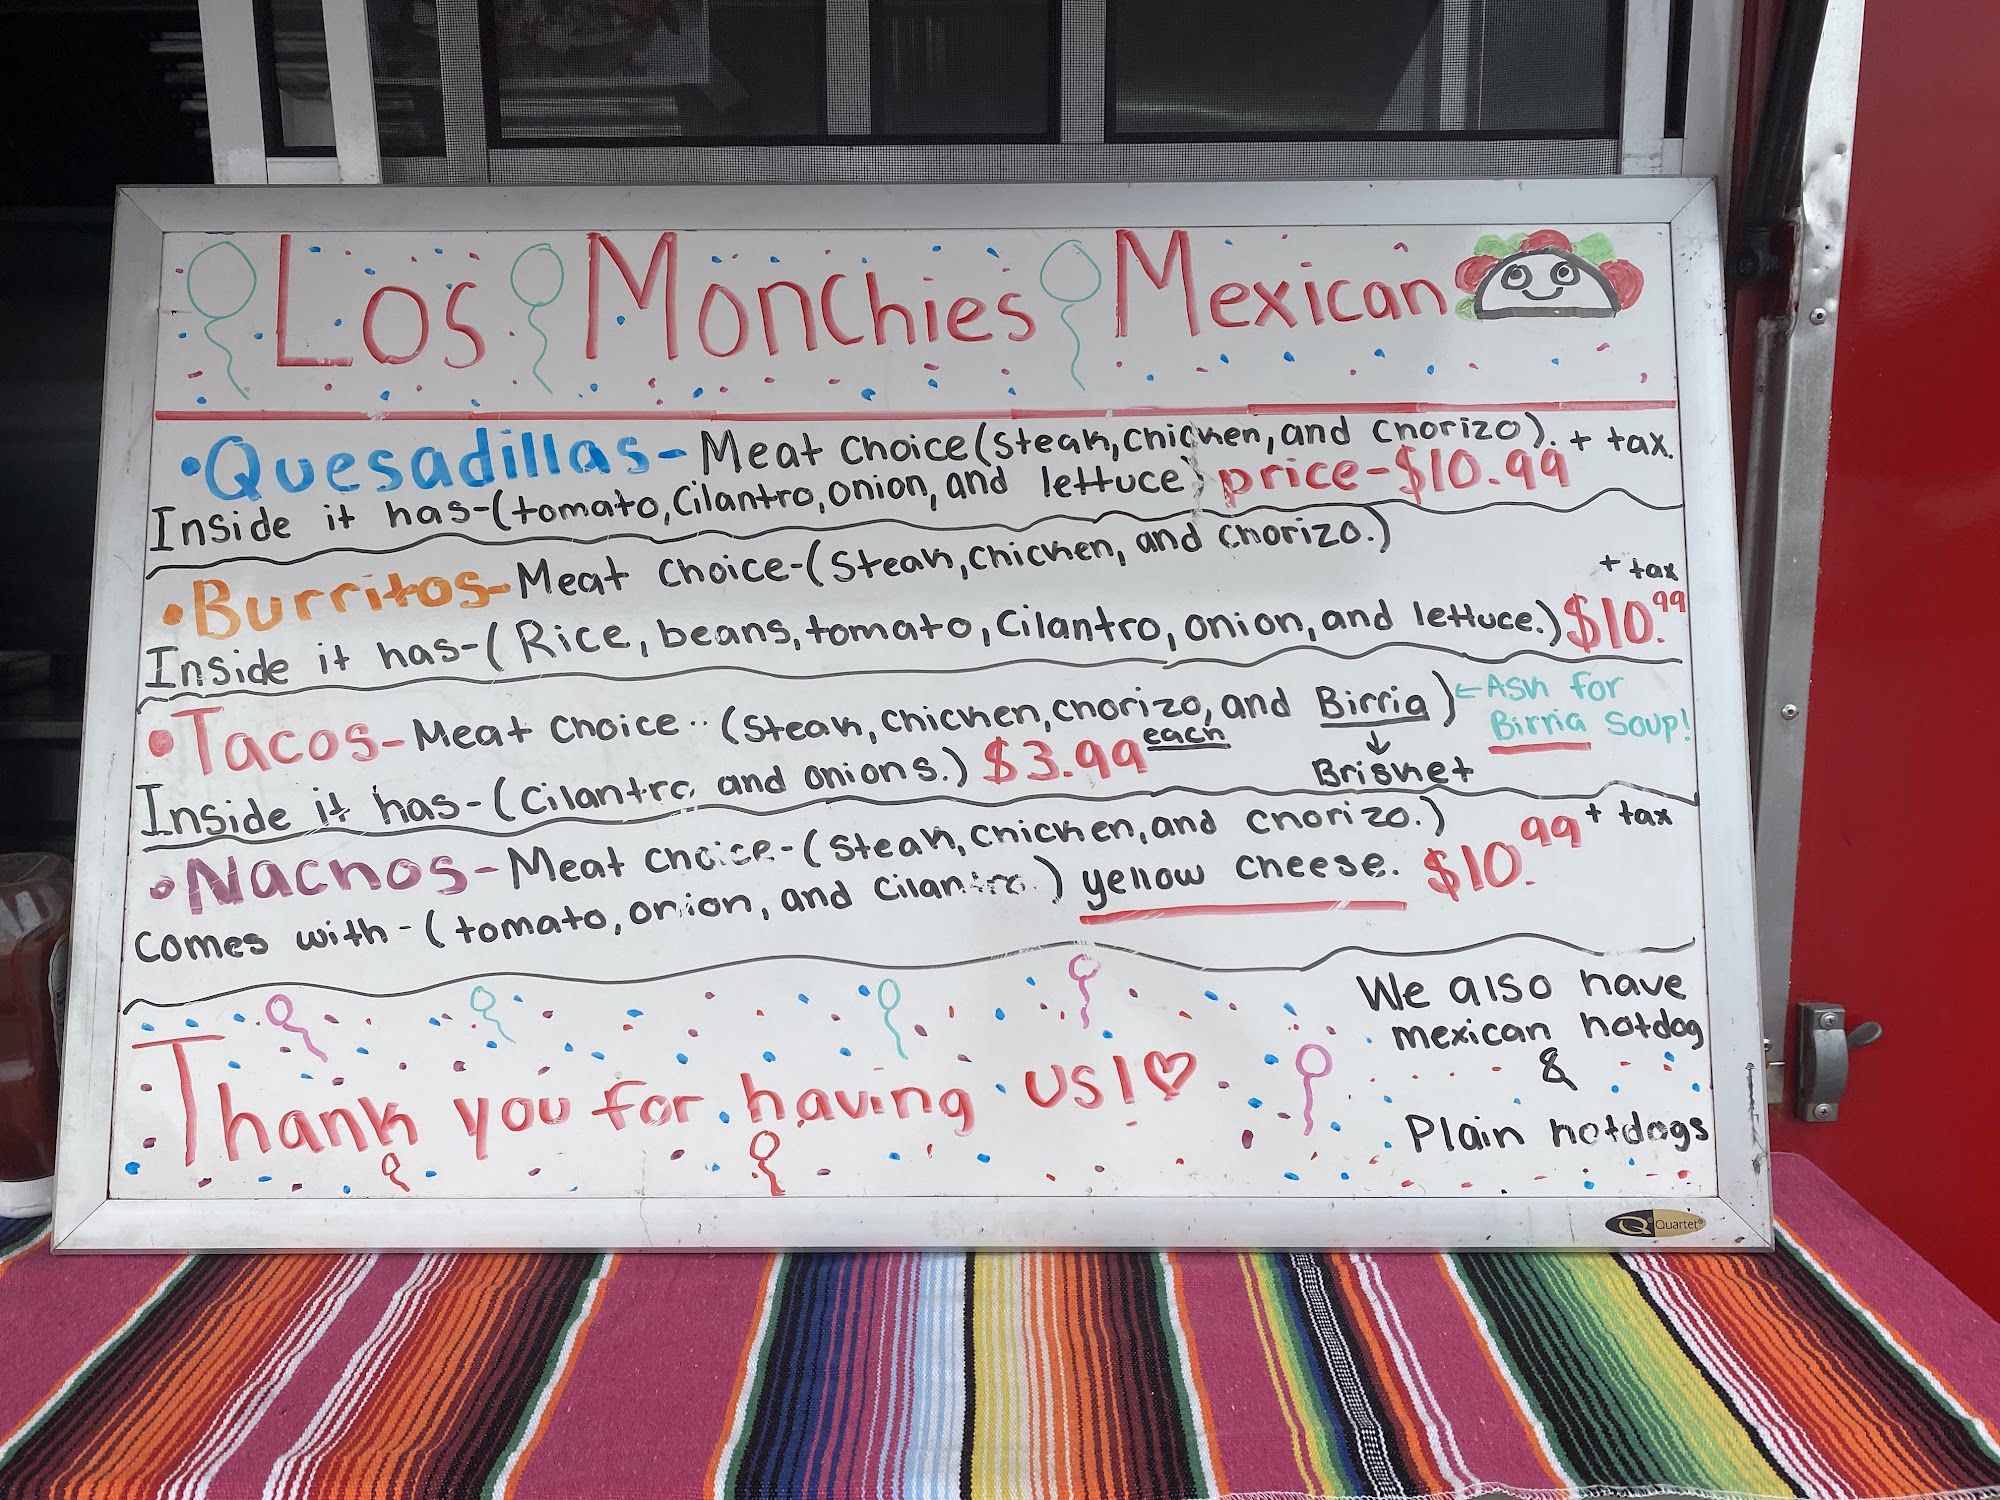 Los Monchies Mexican
•Quesadillas- Meat choice (steak, chicken, and chorizo). + tax.
Inside it has-(tomato, cilantro, onion, and lettuce) price-$10.99
•Burritos- Meat choice-(steak, chicken, and chorizo.)
+ tax
Inside it has-(Rice, beans, tomato, cilantro, onion, and lettuce.) $10.99
•Tacos- Meat choice-(steak, chicken, chorizo, and Birria) ← Ask for
Birria soup!
Inside it has-(cilantro and onions.) $3.99 each
↓
Brisket
•Nachos- Meat choice-(steak, chicken, and chorizo.)
comes with-(tomato, onion, and cilantro.) yellow cheese. $10.99 + tax
We also have
mexican hotdog
&
Plain hotdogs
Thank you for having us!♡
Q Quartet®